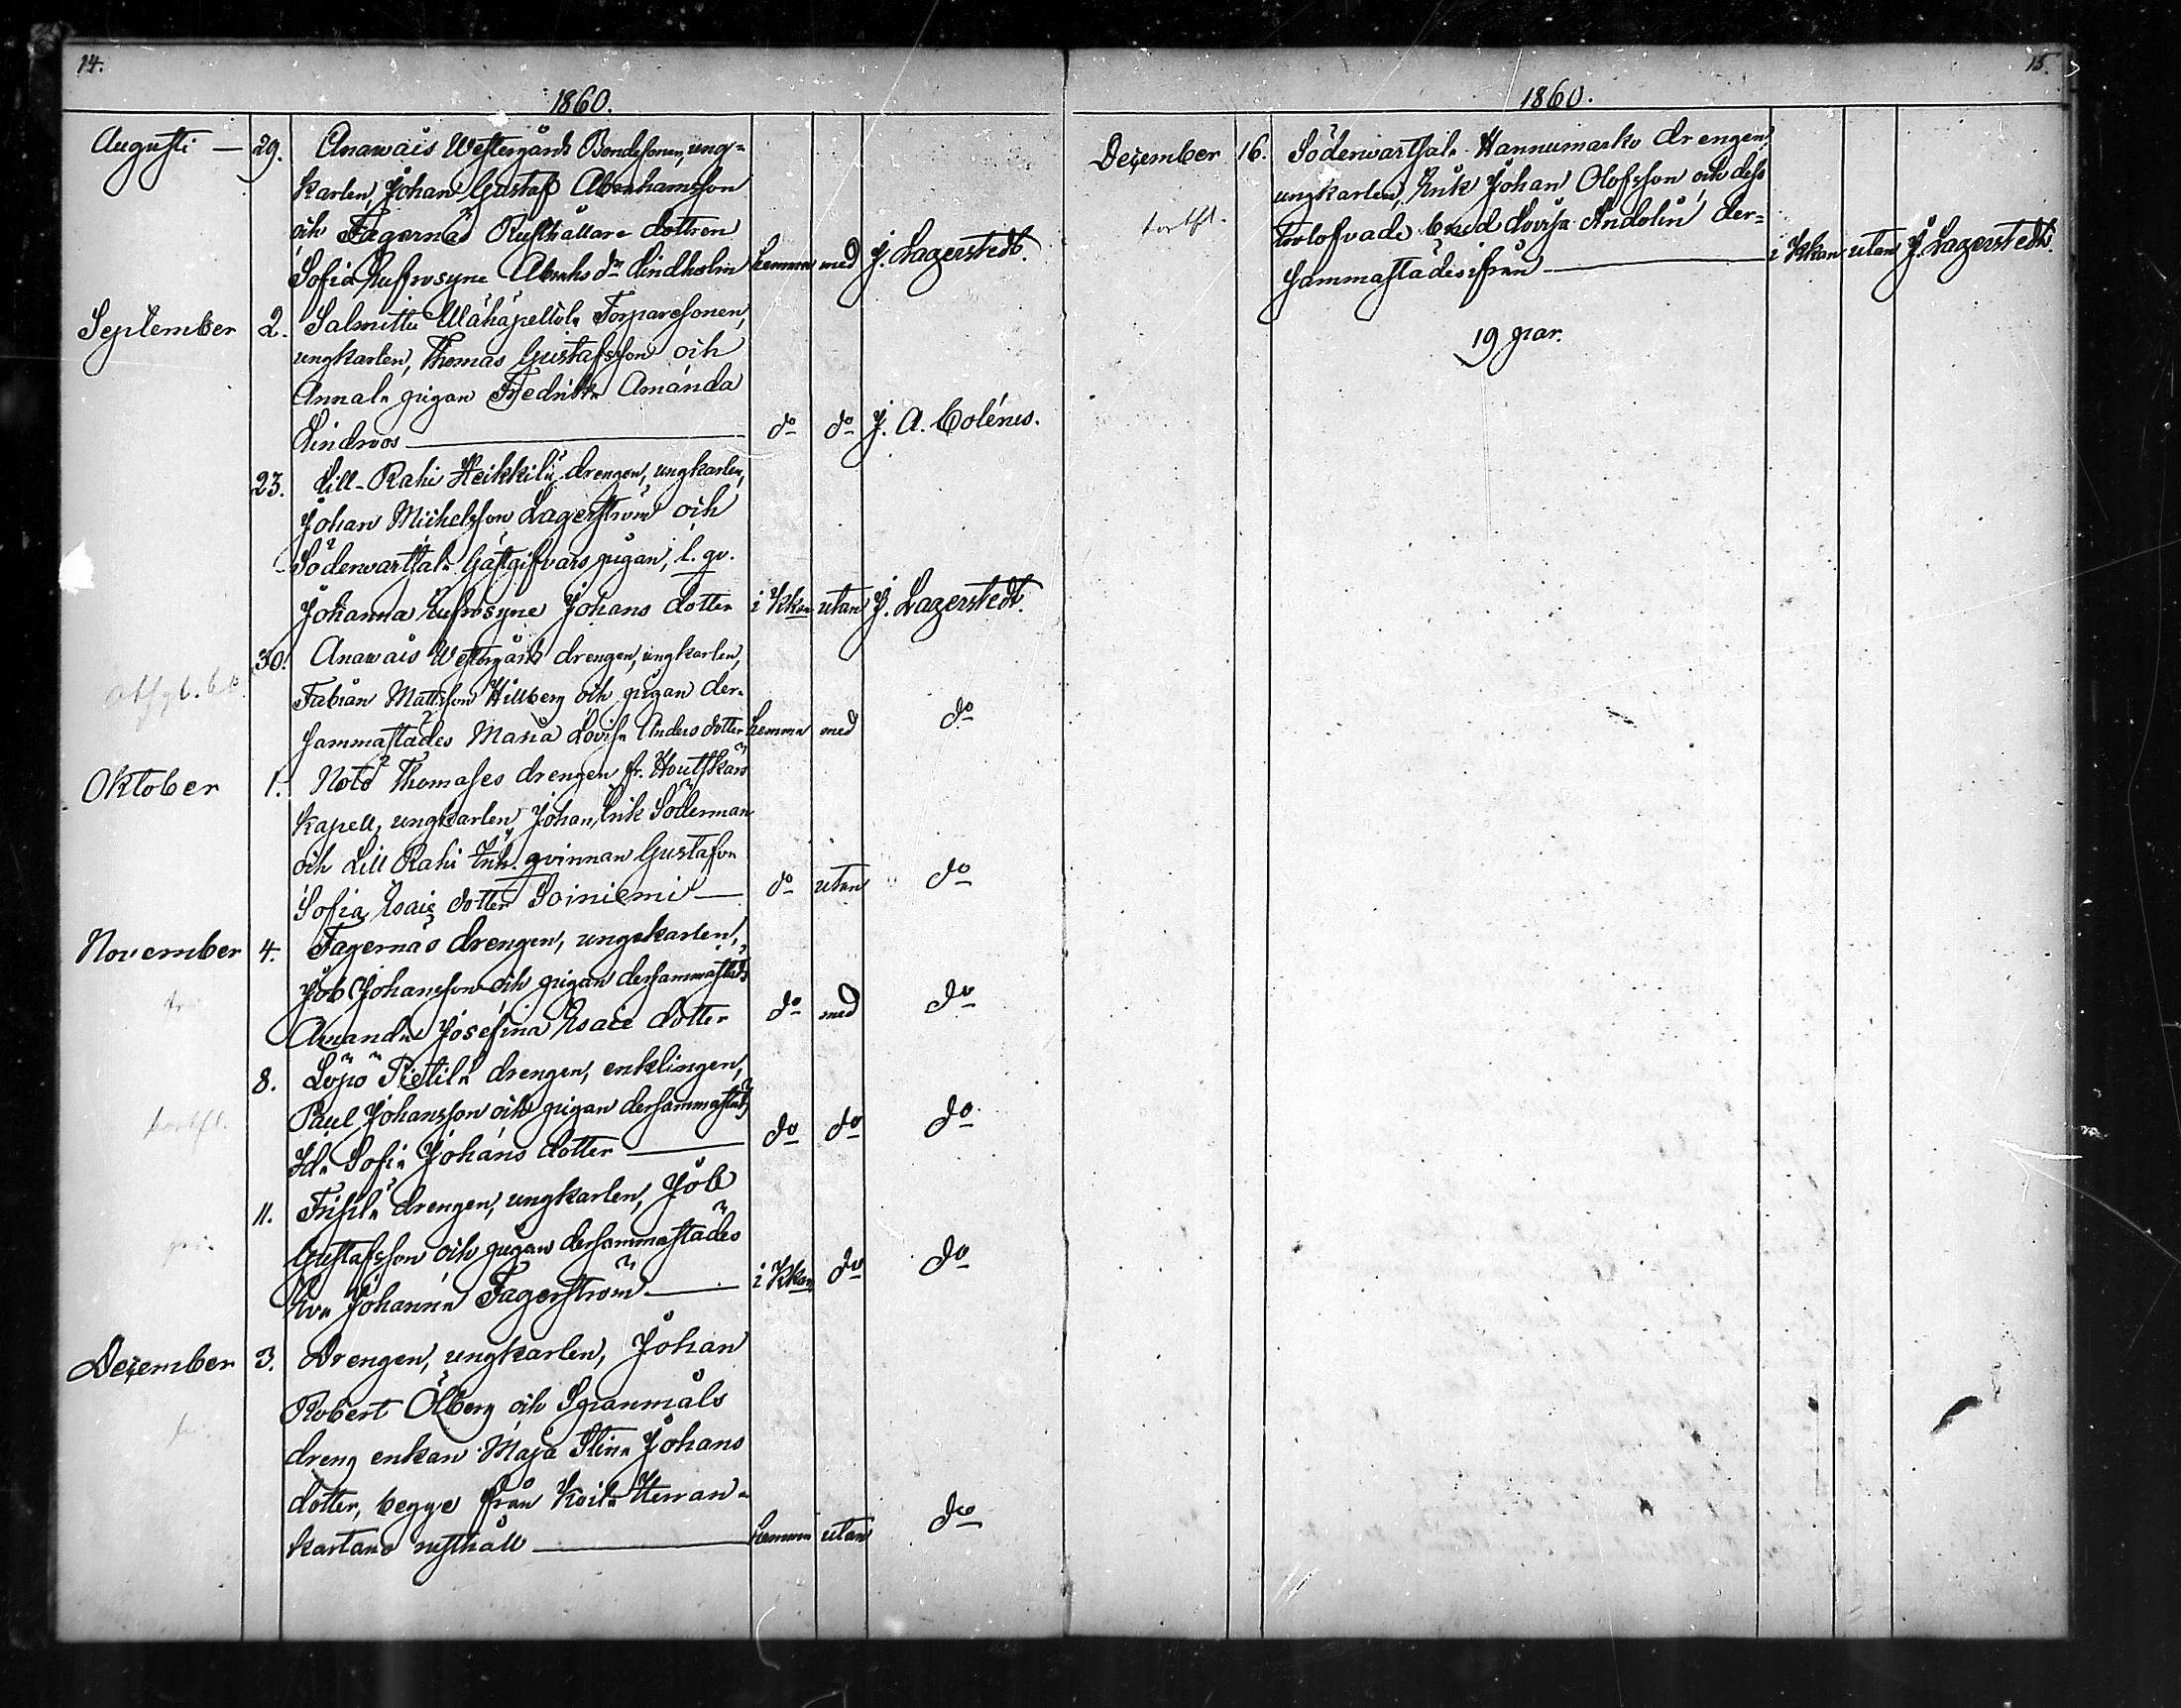 14.
1860.
Augusti — 29. Anawais Westergårds Bondesonen, ung-
karlen, Johan Gustaf Abrahamsson
och Fagernäs Rusthållare dottren
Sofia Eufrosyne Abrahs dr Lindholm hemma med J. Lagerstedt.
September 2. Salmittu Wähäpellola Torparesonen,
ungkarlen, Thomas Gustafsson och
Annala pigan Fredrika Amanda
Lindroos — do do J. A. Colénus.
23. Lill-Rahi Heikkilä drengen, ungkarlen,
Johan Michelsson Lagerström och
Söderwartsala Gästgifvars pigan, l. qv.
Johanna Eufrosyne Johans dotter i Kkan utan J. Lagerstedt.
30. Anawais Westergårds drengen, ungkarlen,
Fabian Mattsson Hillberg och pigan der-
sammastädes Maria Lovisa Anders dotter hemma med do
Oktober 1. Notö Thomases drengen fr. Houtskärs
kapell, ungkarlen Johan Erik Söderman
och Lill Rahi Inh. qvinnan Gustafva
Sofia Esaie dotter Soiniemi — do utan do
November 4. Fagernäs drengen, ungekarlen,
Job Johansson och pigan dersammastäds
Amanda Josefina Esaie dotter do med do
8. Lojo Pietilä drengen, enklingen,
Paul Johansson och pigan dersammastäds
Ida Sofia Johans dotter — do do do
11. Frisila drengen, ungkarlen, Job
Gustafsson och pigan dersammastädes
Eva Johanna Fagerström — i Kkan do do
December 3. Drengen, ungkarlen, Johan
Robert Ölberg och Spranmåls
dreng enkan Maja Stina Johans
dotter, begge från Koila Herran-
kartano rusthåll — hemma utan do
15.
1860.
December 16. Söderwartsala Hannumarko drengen
ungkarlen, Erik Johan Olofsson och dess
trolofvade brud Lovisa Andolin der-
sammastädes ifrån — i Kkan utan J. Lagerstedt.
19 par.